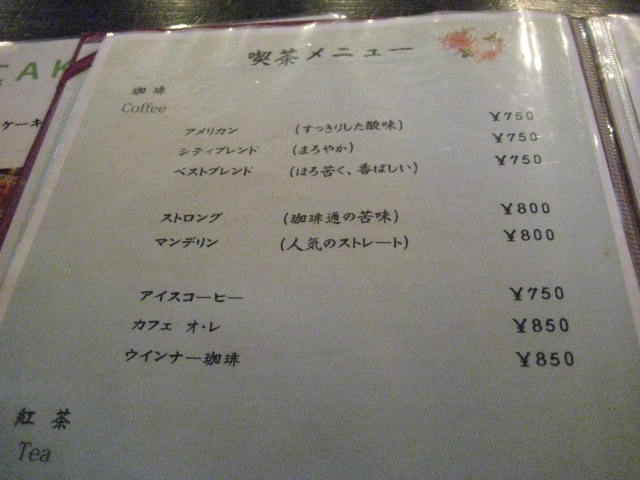 CAK
ケーキ
喫茶メニュー
珈琲
Coffee
アメリカン (すっきりした酸味) ¥750
シティブレンド (まろやか) ¥750
ベストブレンド (ほろ苦く、香ばしい) ¥750
ストロング (珈琲通の苦味) ¥800
マンデリン (人気のストレート) ¥800
アイスコーヒー ¥750
カフェ オ・レ ¥850
ウインナー珈琲 ¥850
紅茶
Tea